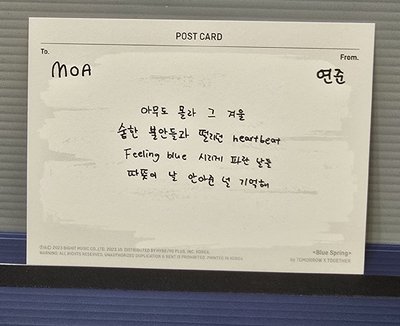 POST CARD
To.
From.
MOA
연준
아무도 몰라 그 겨울
숨한 불안들과 떨리던 heartbeat
Feeling blue 시리게 파란 날들
따뜻이 날 안아준 널 기억해
2023 BIGHIT MUSIC CO., LTD. DISTRIBUTED BY PLUS, INC. KOREA.
WARNING: ALL RIGHTS RESERVED. UNAUTHORIZED DUPLICATION & RENT IS PROHIBITED. PRINTED IN KOREA
<Blue Spring>
by TOMORROW X TOGETHER